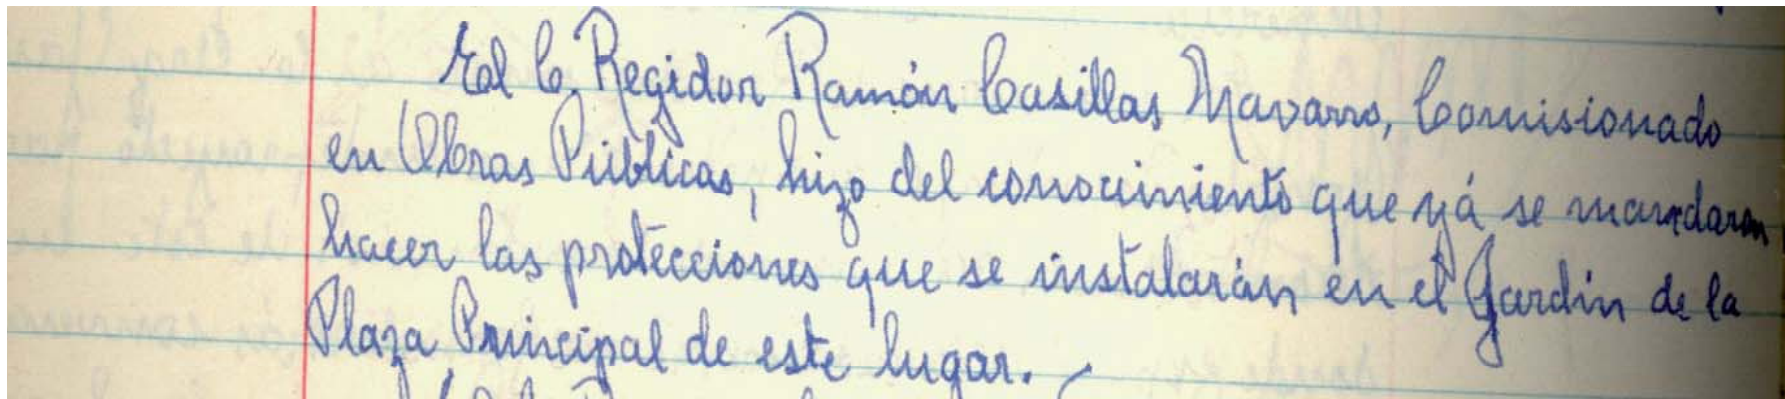 El C. Regidor Ramón Casillas Navarro, Comisionado
en Obras Públicas, hizo del conocimiento que yá se mandaron
hacer las protecciones que se instalarán en el Jardín de la
Plaza Principal de este lugar.